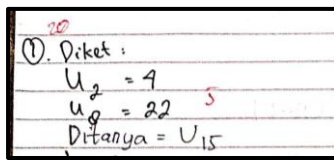 20
①. Diket :
U₂ = 4
u₈ = 22 5
Ditanya = U₁₅